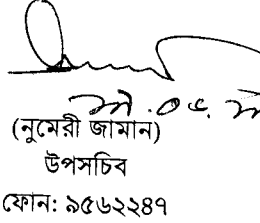 (নুমেরী জামান)
উপসচিব
ফোন: ৯৫৬২২৪৭